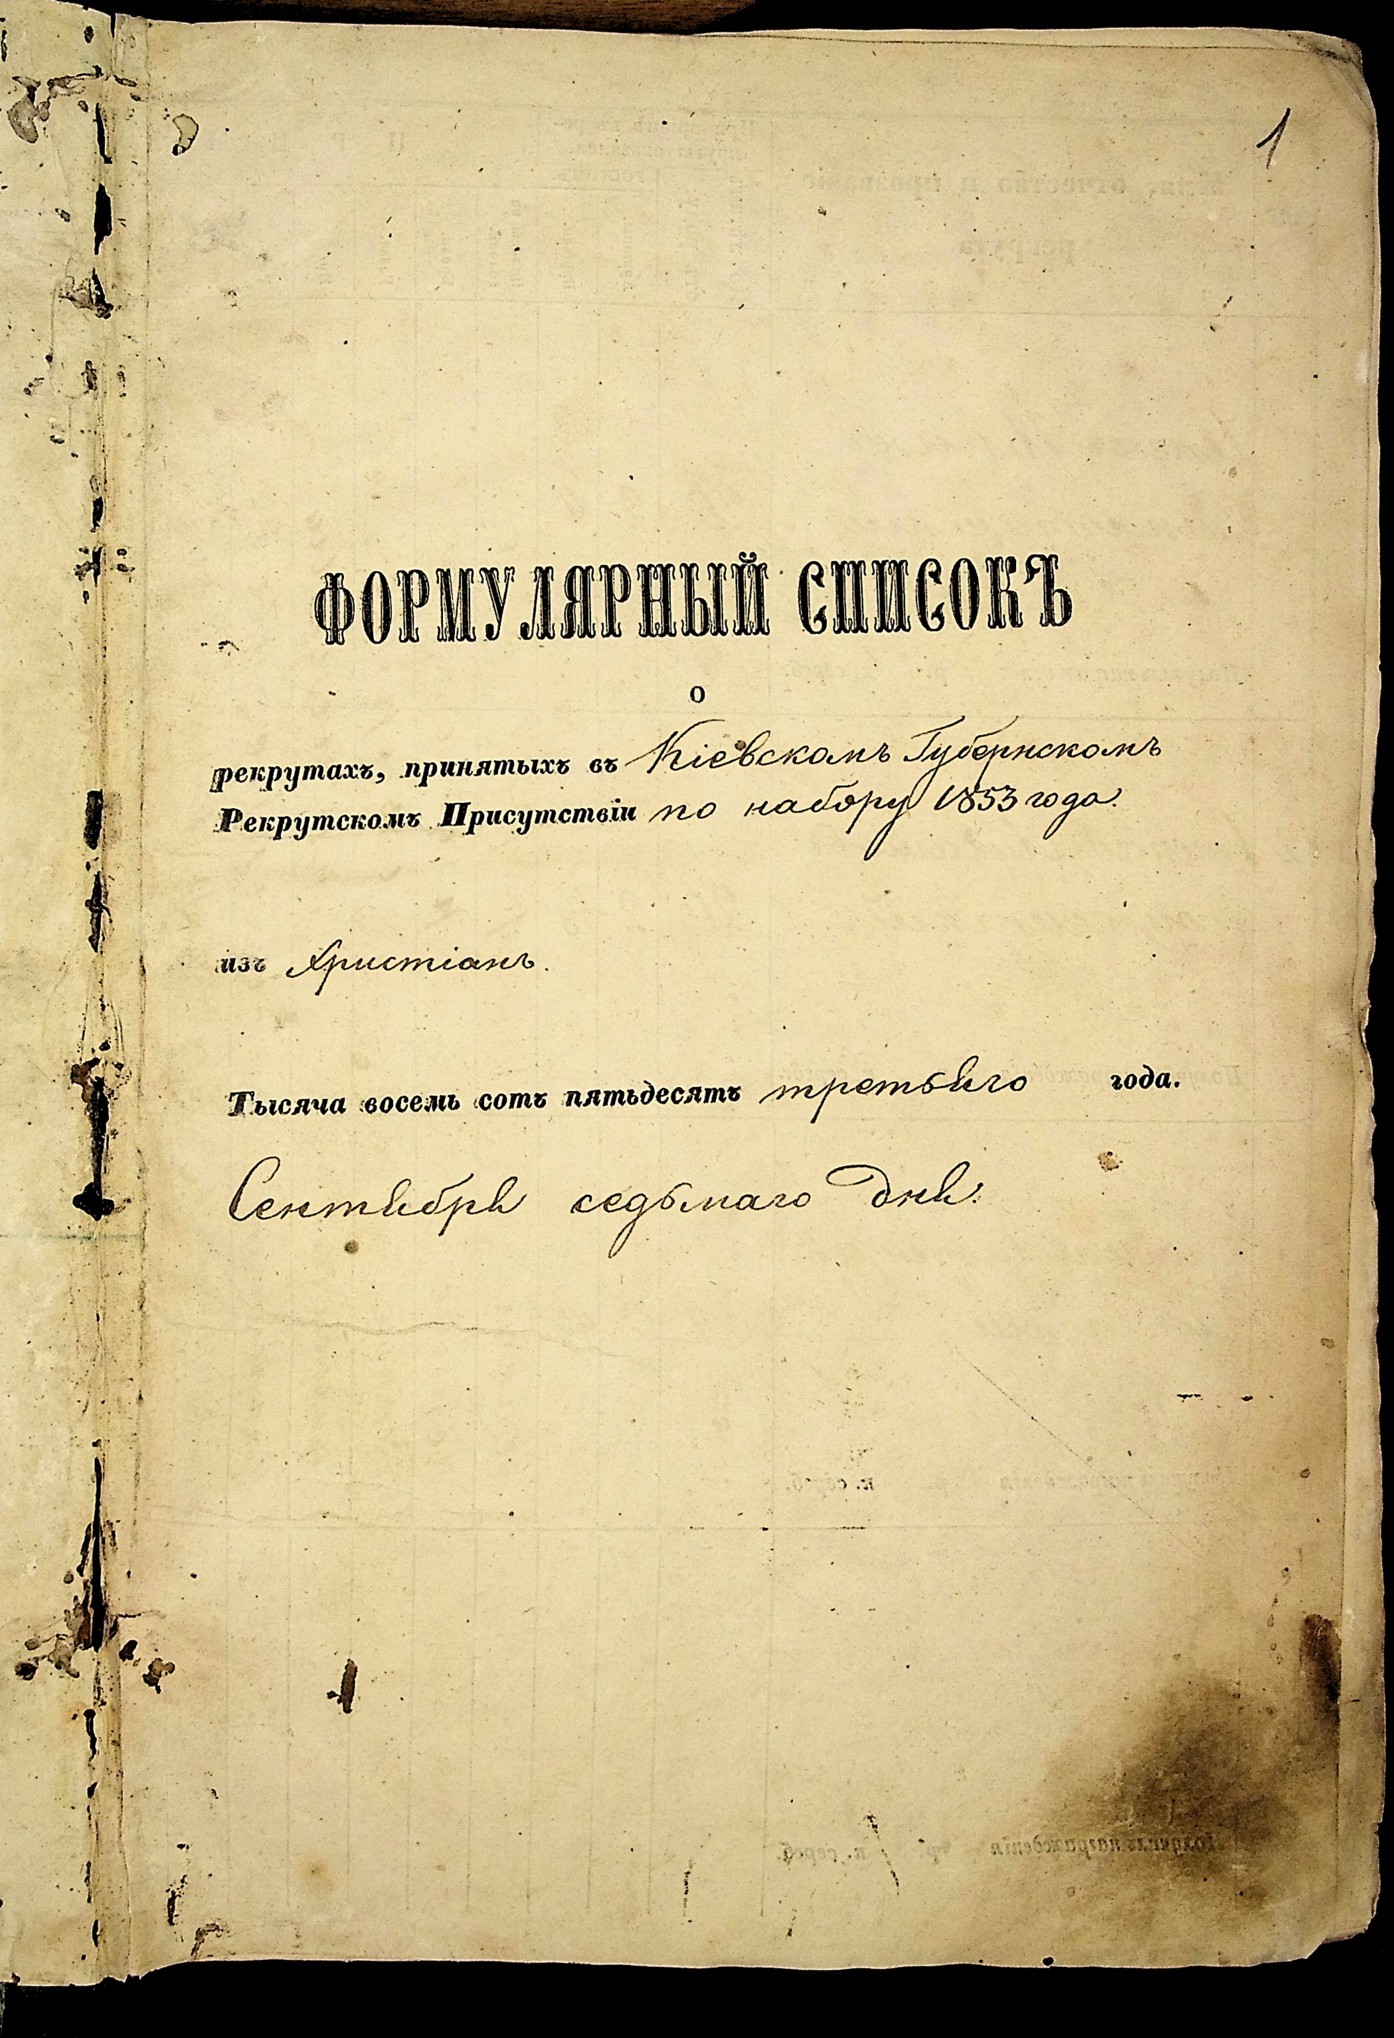 1
ФОРМУЛЯРНЫЙ СПИСОКЪ
о
рекрутахъ, принятыхъ въ Кіевскомъ Губернскомъ
Рекрутскомъ Присутствіи по набору 1853 года.
изъ Христіанъ.
Тысяча восемь сотъ пятьдесятъ третьяго года.
Сентября седьмаго дня.